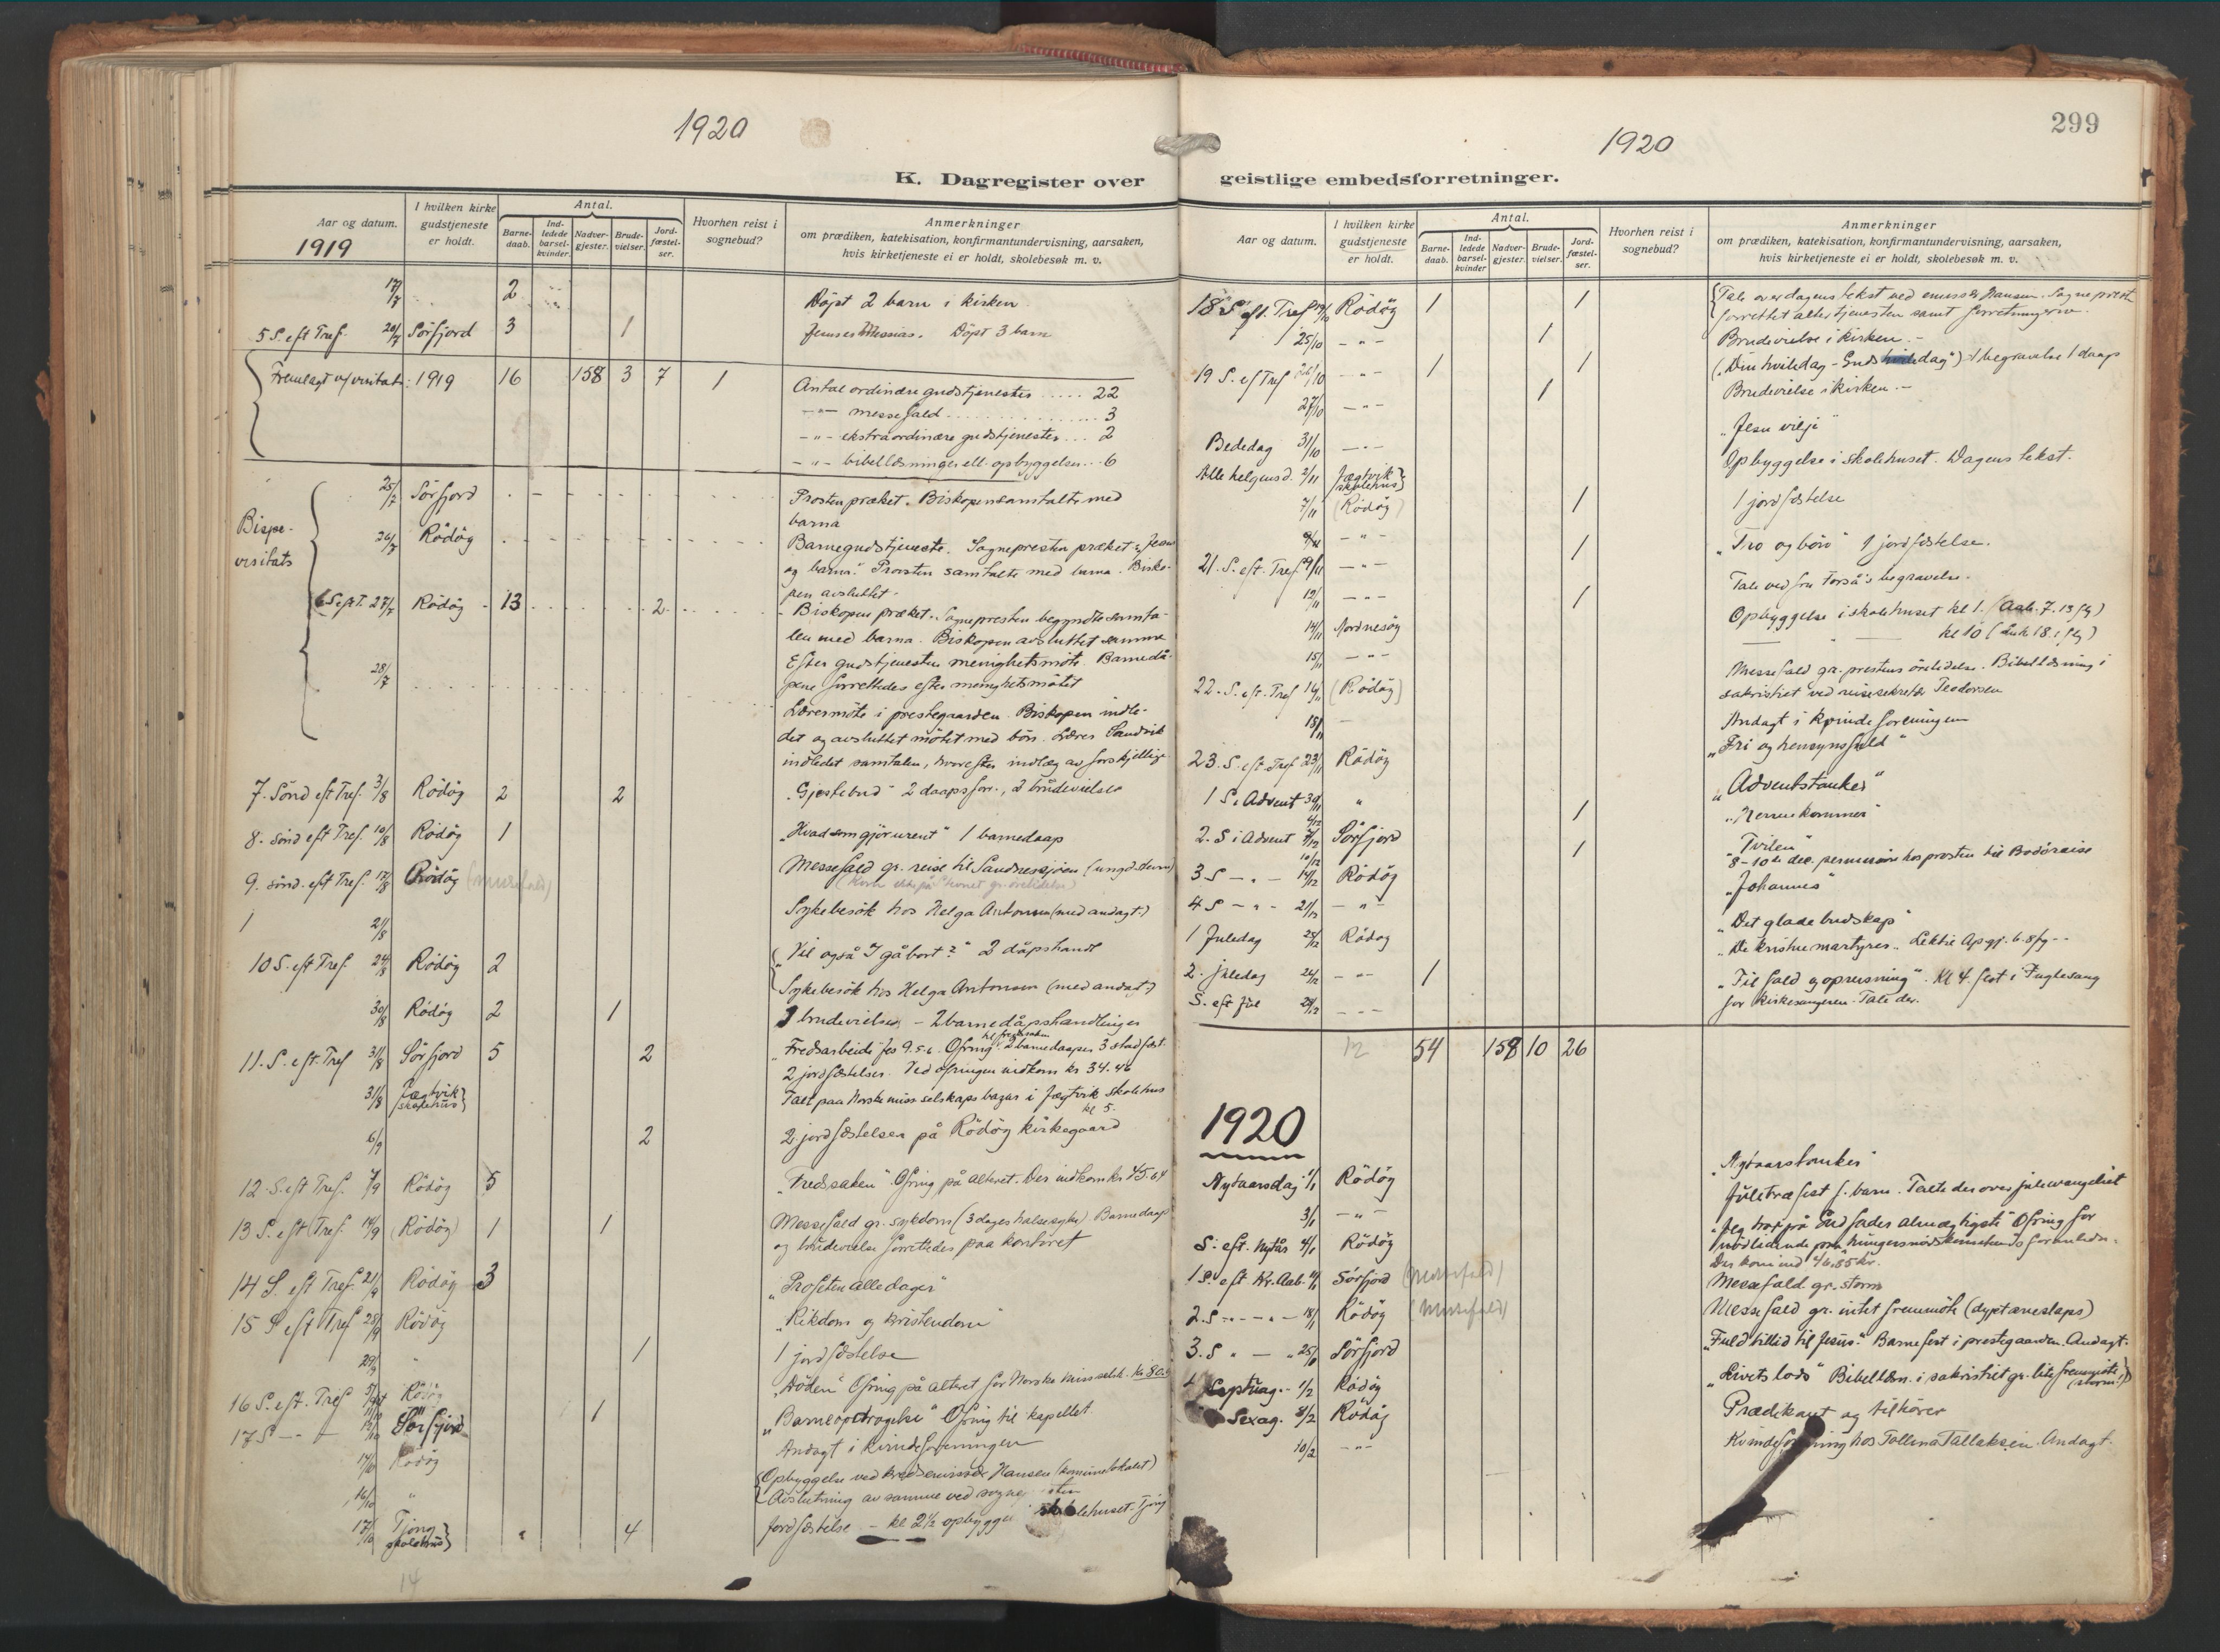 1920
K. Dagregister over
Aar og datum.
1919
I hvilken kirke
gudstjeneste
er holdt.
Antal.
Barne-
daab.
Ind-
ledede
barsel-
kvinder.
Nadver-
gjester.
Brude-
vielser.
Jord-
fæstel-
ser.
Hvorhen reist i
sognebud?
Anmerkninger
om prædiken, katekisation, konfirmantundervisning, aarsaken,
hvis kirketjeneste ei er holdt, skolebesøk m. v.
17/7 2 Döpt 2 barn i kirken
5 S. eft Tref. 20/7 Sörfjord 3 1 Messias. Döpt 3 barn
Fremlagt v/ visitats: 1919 16 158 3 7 1 Antal ordinære gudstjenester ..... 22
-"- messefald .......... 3
-"- ekstraordinære gudstjenester ... 2
-"- bibellæsninger ell. opbyggelser ... 6
Bispe-
visitats
25/7 Sörfjord Prosten præket. Biskopen samtalte med
barna
26/7 Rödöy Barnegudstjeneste. Sognepresten præket "Jesus
og barna." Prosten samtalte med barna. Bisko-
pen avsluttet.
6 S. e. T. 27/7 Rödöy 13 2 Biskopen præket. Sognepresten begyndte samta-
len med barna. Biskopen avsluttet samme
Efter gudstjenesten menighetsmöte. Barnedå-
pene forrettedes efter menighetsmötet
28/7 Læremöte i prestegaarden. Biskopen indle-
det og avsluttet mötet med bön. Lærer Sandvik
indledet samtalen, hvorefter indlæg av forskjellige
7. Sönd eft Tref. 3/8 Rödöy 2 2 "Gjestebud" 2 daapsforr., 2 brudevielser
8. sönd eft Tref. 10/8 Rödöy 1 "Hvad som gjör urent" 1 barnedaap
9. sönd. eft Tref. 17/8 Rödöy (messefald) Messefald gr. reise til Sandnessjöen (ungd.stevne)
21/8 Sykebesök hos Helga Antonsen (med andagt.)
10 S. eft Tref. 24/8 Rödöy 2 "Vil også I gå bort?" 2 dåpshandl
Sykebesök hos Helga Antonsen (med andagt.)
30/8 Rödöy 2 1 1 brudevielse - 2 barnedåpshandlinger
11. S. eft. Tref 31/8 Sörfjord 5 2 "Fredsarbeide" Jes 9.5-6. Ofring til fredssaken 2 barnedaaper 3 stadfæst.
2 jordfæstelser. Ved ofringen indkom kr 34.46
31/8 Jægtvik skolehus Talt paa Norske miss selskaps bazar i Jægtvik skolehus
kl 5.
6/9 2 2 jordfæstelser på Rödöy kirkegaard
12. S. eft Tref. 7/9 Rödöy 5 "Fredssaken". Ofring på alteret. Der indkom kr 45.64
13 S. eft Tref. 14/9 (Rödöy) 1 1 Messefald gr. sykdom (3 dages halsesyke) Barnedaap
og brudevielse forrettedes paa kontoret
14 S. eft Tref. 21/9 Rödöy 3 "Profeten alle dager"
15 S eft Tref 28/9 Rödöy "Rikdom og kristendom"
29/9 " 1 1 jordfæstelse
16 S. eft. Tref 5/10 Rödöy "Döden" Ofring på alteret for Norske miss.selsk.
17 S -"- 12/10 Sörfjord 1 "Barneopdragelse" Ofring til kapellet
14/10 Rödöy Andagt i kvindeforeningen
16/10 " Opbyggelse ved kredsemissær Hansen (komunelokalet)
Avslutning av samme ved
17/10 Tjong skolehus 4 Jordfæstelse - kl 2½ skolehuset Tjong
14
1920
299
geistlige embedsforretninger.
Aar og datum.
I hvilken kirke
gudstjeneste
er holdt.
Antal.
Barne-
daab.
Ind-
ledede
barsel-
kvinder
Nadver-
gjester.
Brude-
vielser.
Jord-
fæstel-
ser.
Hvorhen reist i
sognebud?
Anmerkninger
om prædiken, katekisation, konfirmantundervisning, aarsaken,
hvis kirketjeneste ei er holdt, skolebesøk m. v.
18 S eft. Tref 19/10 Rödöy 1 1 Tale over dagens tekst ved emissær Hansen. Sogneprest
forrettet altertjenesten samt forretningerne.
25/10 -"- 1 Brudevielse i kirken.-
19 S. ef Tref 26/10 -"- 1 1 ("Din hviledag - Guds hviledag") 1 begravelse 1 daap
27/10 -"- 1 Brudevielse i kirken.-
Bededag 31/10 -"- "Jesu vilje"
Alle helgensd. 2/11 Jægtvik skolehus Opbyggelse i skolehuset. Dagens tekst.
7/11 (Rödöy) 1 1 jordfæstelse
-"-
21. S. eft. Tref 9/11 -"- 1 "Tro og bön" 1 jordfæstelse.
12/11 -"- 1 Tale ved fru begravelse.
14/11 Nordnesöy Opbyggelse i skolehuset kl 1. (Aab. 7. 13 flg)
15/11 -"- kl 10 (Luk 18.1 flg)
22. S. eft. Tref 16/11 (Rödöy) Messefald gr. prestens Bibellæsning i
sakristiet ved reisesekretær Teodorsen
18/11 - Andagt i kvindeforeningen
23. S. eft Tref 23/11 Rödöy "Fri og hensynsfuld"
1 S. i Advent 30/11 " "Adventstanker"
1
2. S i Advent 7/12 Sörfjord "Herren kommer"
10/12 1 "Tvilen"
8-10de dec. permission hos prosten til Bodöreise
3 S -"- 14/12 Rödöy "Johannes"
4 S -"- 21/12 -"- "Det glade budskap"
1 Juledag 25/12 Rödöy "De kristne martyrer". Lektie Ap gj. 6. 8 fg--
2. juledag 26/12 -"- 1 "Til fald og opreisning". Kl 4 fest i Fuglesang
S. eft Jul 28/12 -"- for kirkesangeren. Tale der.
12 54 158 10 26
1920
Nytaarsdag 1/1 Rödöy "Nytaarstanker"
3/1 -"- Juletræfest f. barn. Talte der over juleevangeliet
S. eft. Nytår 4/1 Rödöy "Jeg tror på Gud fader almægtigste" Ofring for
nödlidende
Der kom ind 46.85 kr.
1 S. eft Kr. Aab. 11/1 Sörfjord (messefald) Messefald. gr. storm
2. S -"- 18/1 Rödöy (messefald) Messefald gr. intet fremmöte (dypt snelaps)
3. S " - " 25/1 Sörfjord "Fuld tillid til Jesus." Barnefest i prestegaarden. Andagt.
Septuag. 1/2 Rödöy "Livets lods" Bibellæsn. i sakristiet gr. lite fremmöte (storm!)
Sexag. 8/2 Rödöy Prædikant og tilhörer
10/2 -"- Kvindeforening hos Tallaksen. Andagt.